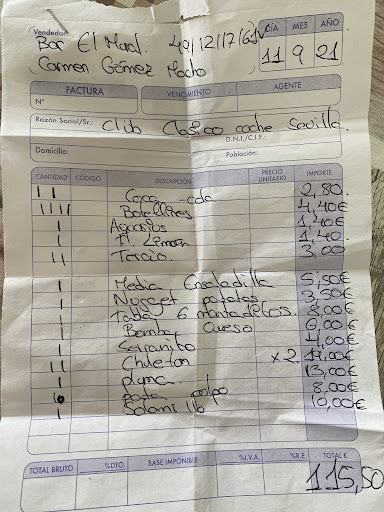 Vendedor:
Bar El Maral. 49/12/17/61V
DÍA MES AÑO
Carmen Gómez Macho 11 9 21
FACTURA VENCIMIENTO AGENTE
Nº
Razón Social/Sr.: Club Clasico coche Sevilla.
D.N.I./C.I.F.:
Domicilio: Población:
CANTIDAD CÓDIGO DESCRIPCIÓN PRECIO UNITARIO IMPORTE
II Coca-cola 2,80
IIII Botellines 4,40€
I Aquarius 1,40€
I F. Limon 1,40
II Tercio 3,00
I Media Ensaladilla 5,50€
I Nugget patatas 3,50€
I Tabla 6 montaditos 8,00€
I Bomba queso 6,00€
I Serranito 4,00€
II Chuleton x2
I pluma 13,00€
pulpo 8,00€
I Solomillo 10,00€
TOTAL BRUTO %DTO. BASE IMPONIBLE %I.V.A. %R.E. TOTAL €
115,50